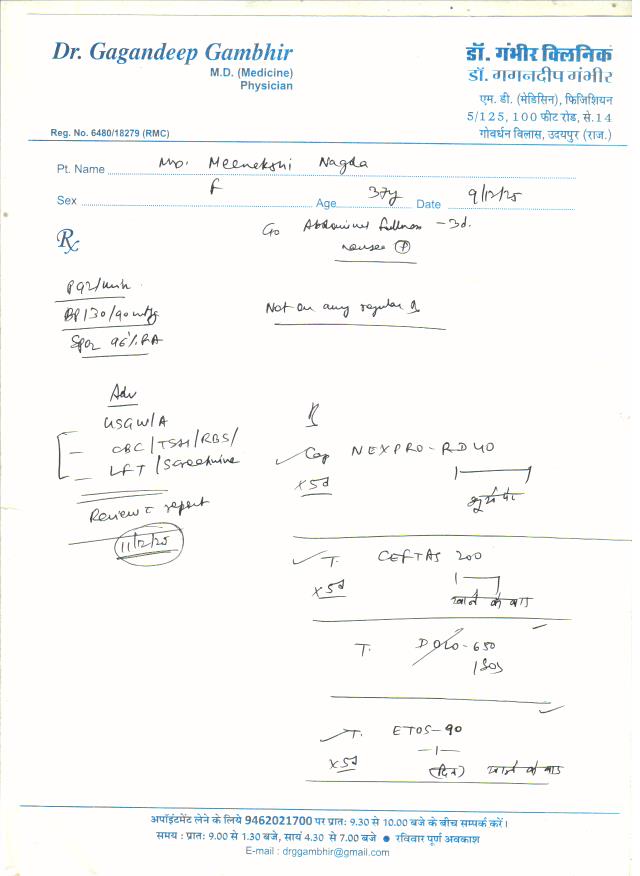 Dr. Gagandeep Gambhir
M.D. (Medicine)
Physician
Reg. No. 6480/18279 (RMC)
डॉ. गंभीर क्लिनिक
डॉ. गगनदीप गंभीर
एम. डी. (मेडिसिन), फिजिशियन
5/125, 100 फीट रोड, से.14
गोवर्धन विलास, उदयपुर (राज.)
Pt. Name Mrs. Meenekshi Nagda
Sex F Age 37y Date 9/12/25
Rx
C/o Abdominal fullness - 3d.
nausea (+)
P 92/min
BP 130/90 mmHg
SpO2 96% RA
Not on any regular
Adv
USG W/A
CBC / TSH / RBS /
LFT / S creatinine
Review c report
11/12/25
Rx
Cap NEXPRO-RD 40
x 5d
भूखे पेट
T. CEFTAS 200
x 5d
खाने के बाद
T. DOLO-650
1 SOS
T. ETOS-90
— 1 —
x 5d (दिन) खाने के बाद
अपॉइंटमेंट लेने के लिये 9462021700 पर प्रातः 9.30 से 10.00 बजे के बीच सम्पर्क करें।
समय : प्रातः 9.00 से 1.30 बजे, सायं 4.30 से 7.00 बजे ● रविवार पूर्ण अवकाश
E-mail : drggambhir@gmail.com